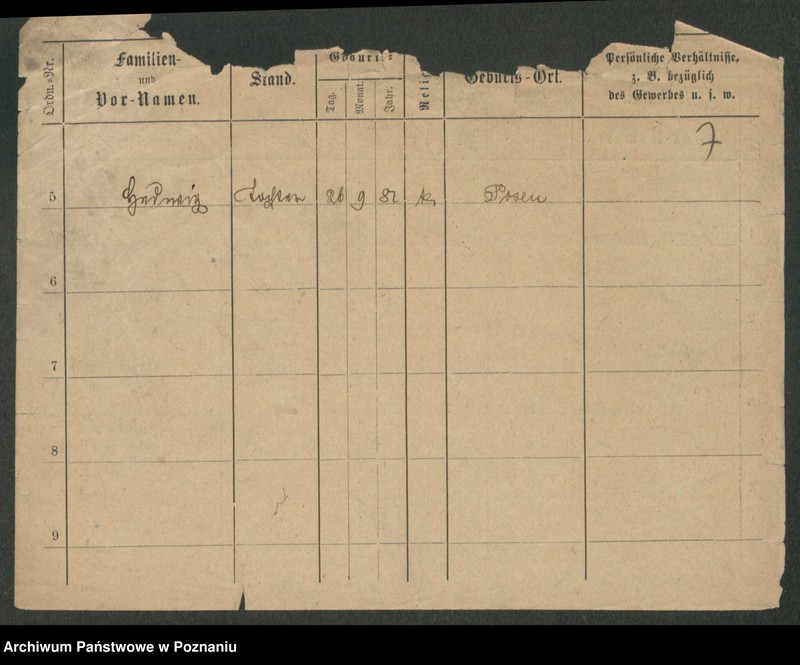 Ordn.-Nr.
Familien-
und
Vor-Namen.
Stand.
Geburts-
Tag.
Monat.
Jahr.
Relig
Geburts-Ort.
Persönliche Verhältnisse,
z. B. bezüglich
des Gewerbes u. s. w.
7
5 Hedwig Tochter 26 9 82 k. Posen
6
7
8
9
Archiwum Państwowe w Poznaniu